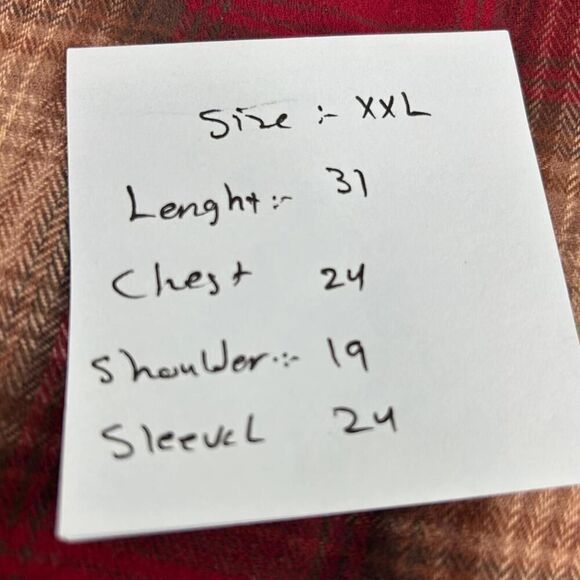 Size :- XXL
Lenght :- 31
Chest 24
Shoulder :- 19
Sleevel 24